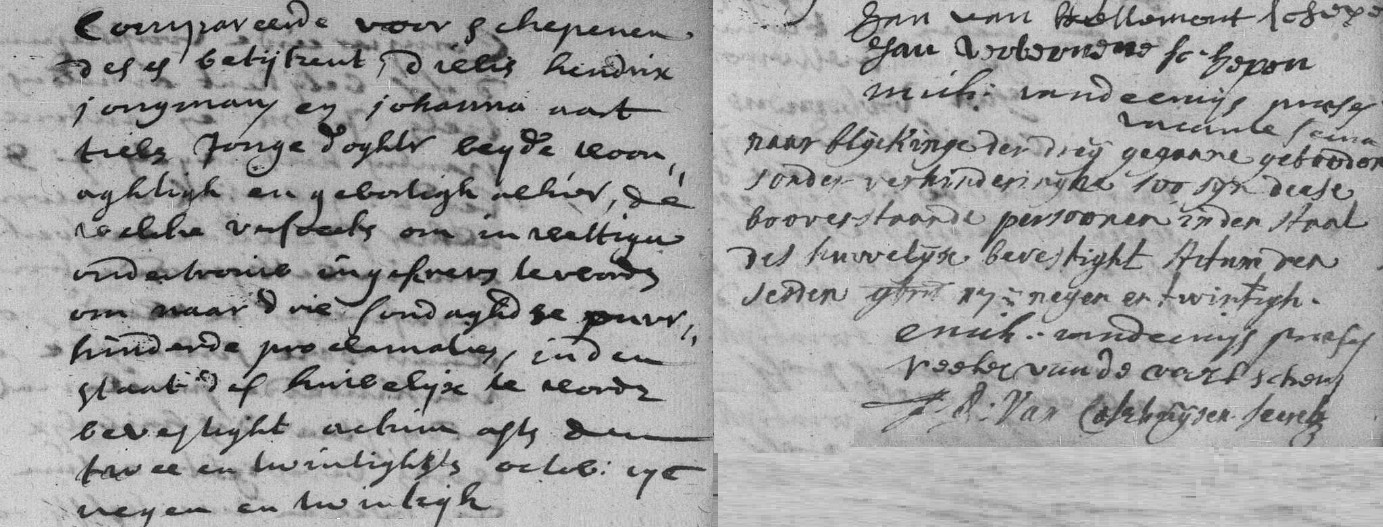 Compareerde voor schepenen
deses betijkent, dielis hendrix
jongman en johanna aert
tielis Jonge doghter beyde woon,,
aghtigh en geboortigh alhier, de
welcke versoeckt om in wettigen
ondertrouw ingeschreven te worden
om naar drie sondaghdse onver,,
hinderde proclamaties, in den
staat des huwelijx te worden
bevestight actum desen
twee en twintighste octob: 17c
negen en twintigh
Jan van schepe
Jan verberne schepen
mich: vandeenijs preses
vacante
naar blijckinge der drij gegaane gebooden
sonder verhinderinghe soo syn deese
booverstaande persoonen in den staat
des huwelijx bevestight Actum den
sesden 17c negen en twintigh.
mich: vandeenijs preses
peeter van de vorst schepen
Van